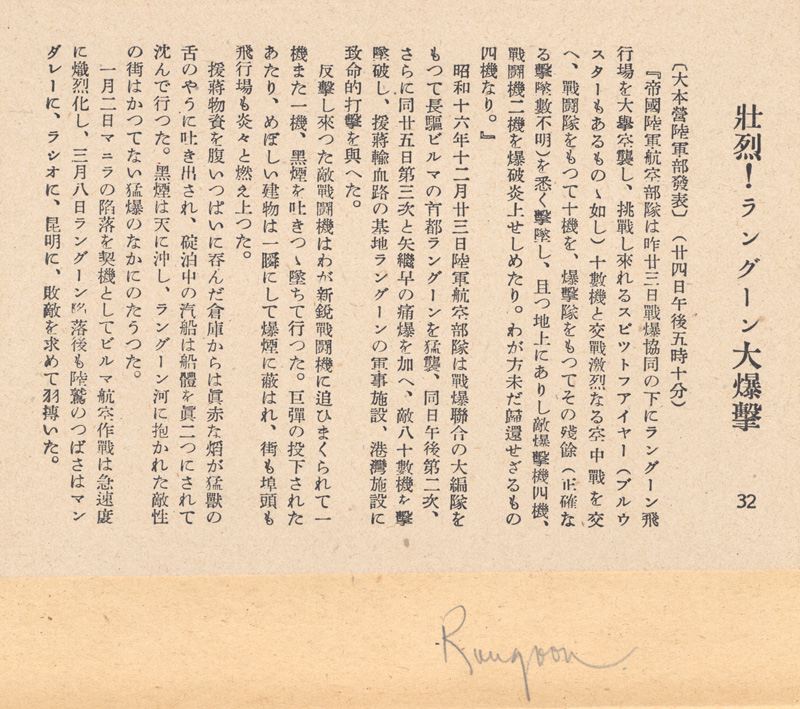 壯烈！ラングーン大爆擊 32
〔大本營陸軍部發表〕（廿四日午後五時十分）
『帝國陸軍航空部隊は昨廿三日戰爆協同の下にラングーン飛
行場を大擧空襲し、挑戰し來れるスピツトフアイヤー（ブルウ
スターもあるものゝ如し）十數機と交戰激烈なる空中戰を交
へ、戰鬪隊をもつて十機を、爆擊隊をもつてその殘餘（正確な
る擊墜數不明）を悉く擊墜し、且つ地上にありし敵爆擊機四機、
戰鬪機二機を爆破炎上せしめたり。わが方未だ歸還せざるもの
四機なり。』
昭和十六年十二月廿三日陸軍航空部隊は戰爆聯合の大編隊を
もつて長驅ビルマの首都ラングーンを猛襲、同日午後第二次、
さらに同廿五日第三次と矢繼早の痛爆を加へ、敵八十數機を擊
墜破し、援蔣輸血路の基地ラングーンの軍事施設、港灣施設に
致命的打擊を與へた。
反擊し來つた敵戰鬪機はわが新銳戰鬪機に追ひまくられて一
機また一機、黑煙を吐きつゝ墜ちて行つた。巨彈の投下された
あたり、めぼしい建物は一瞬にして爆煙に蔽はれ、街も埠頭も
飛行場も炎々と燃え上つた。
援蔣物資を腹いつぱいに吞んだ倉庫からは眞赤な焰が猛獸の
舌のやうに吐き出され、碇泊中の汽船は船體を眞二つにされて
沈んで行つた。黑煙は天に沖し、ラングーン河に抱かれた敵性
の街はかつてない猛爆のなかにのたうつた。
一月二日マニラの陷落を契機としてビルマ航空作戰は急速度
に熾烈化し、三月八日ラングーン陷落後も陸鷲のつばさはマン
ダレーに、ラシオに、昆明に、敗敵を求めて羽搏いた。
Rangoon